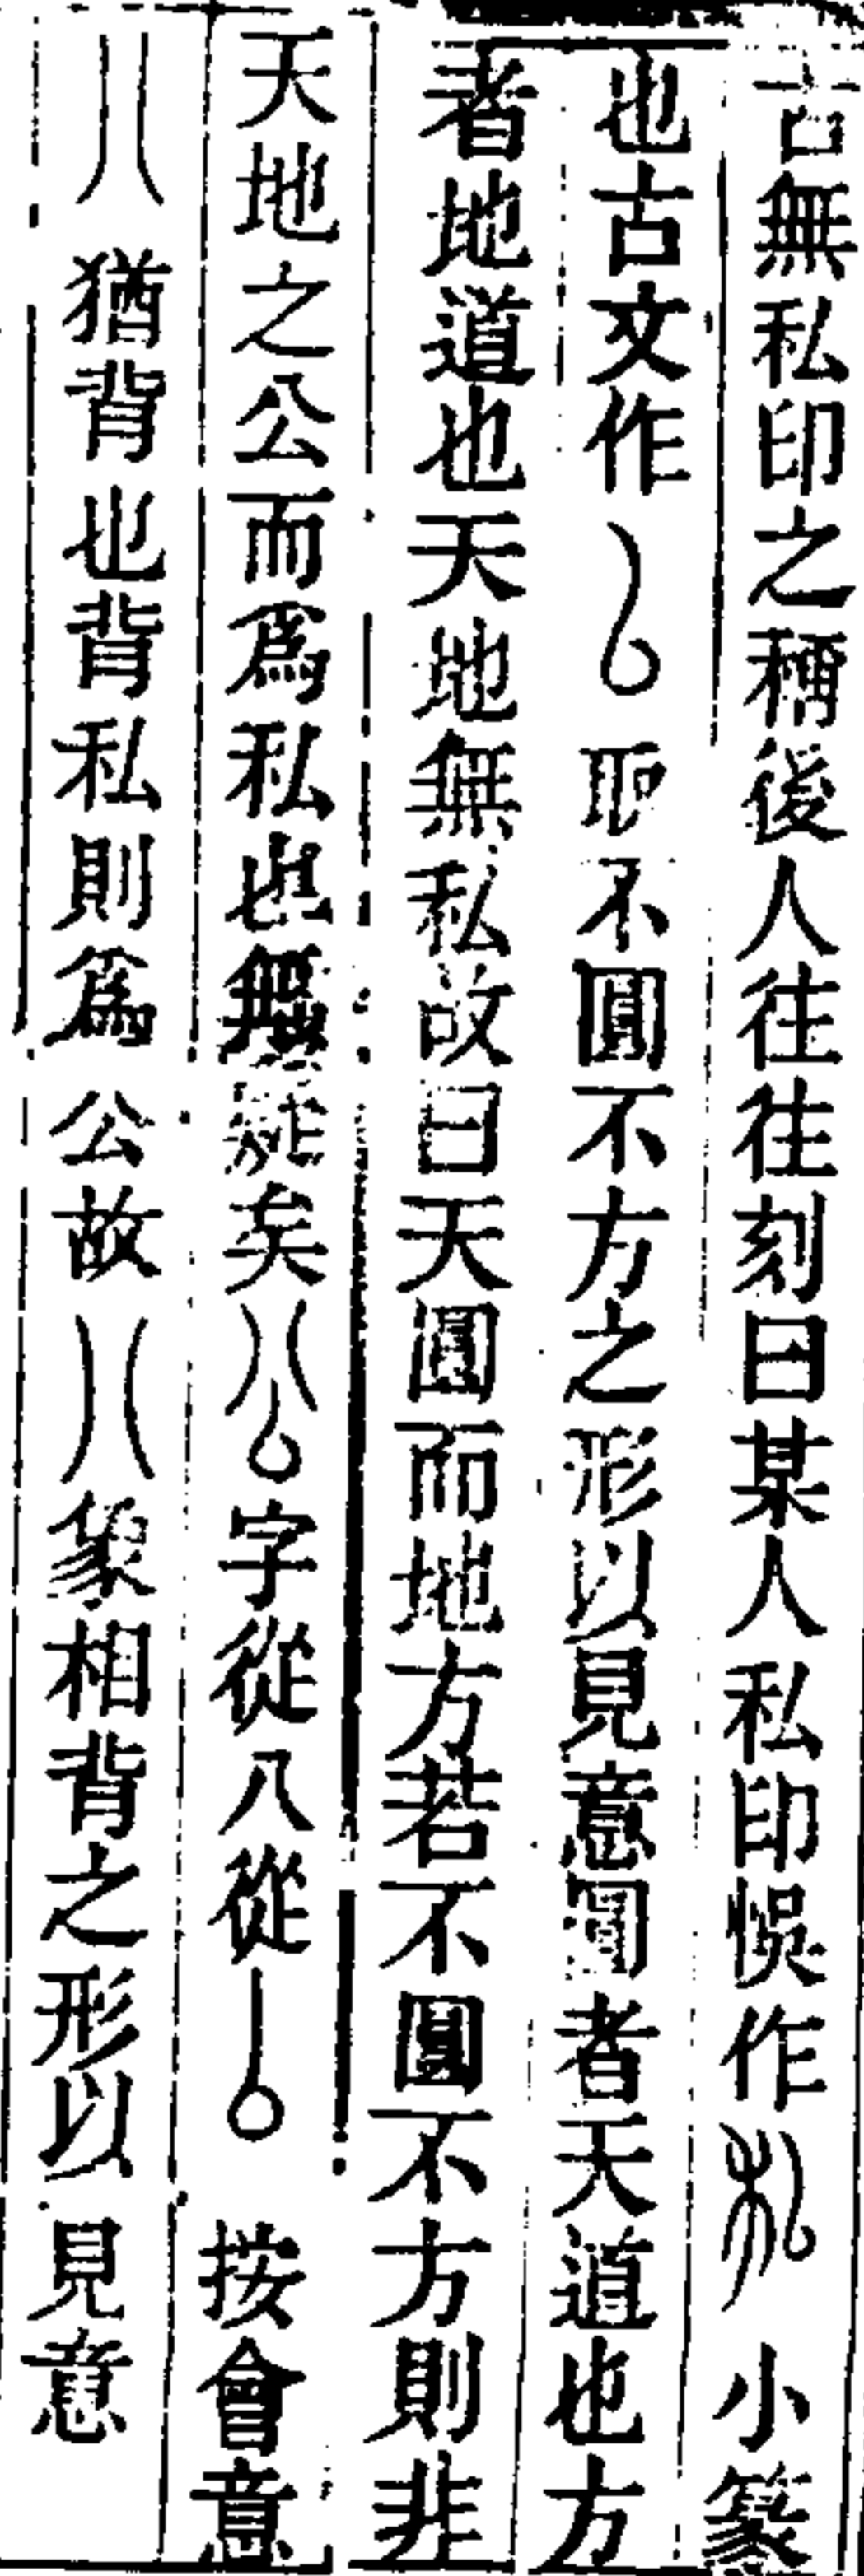 古無私印之稱後人往往刻曰某人私印悞作小篆
也古文作取不圓不方之形以見意圓者天道也方
者地道也天地無私故曰天圓而地方若不圓不方則非
天地之公而爲私也無疑矣字從八從按會意
八猶背也背私則爲公故八象相背之形以見意